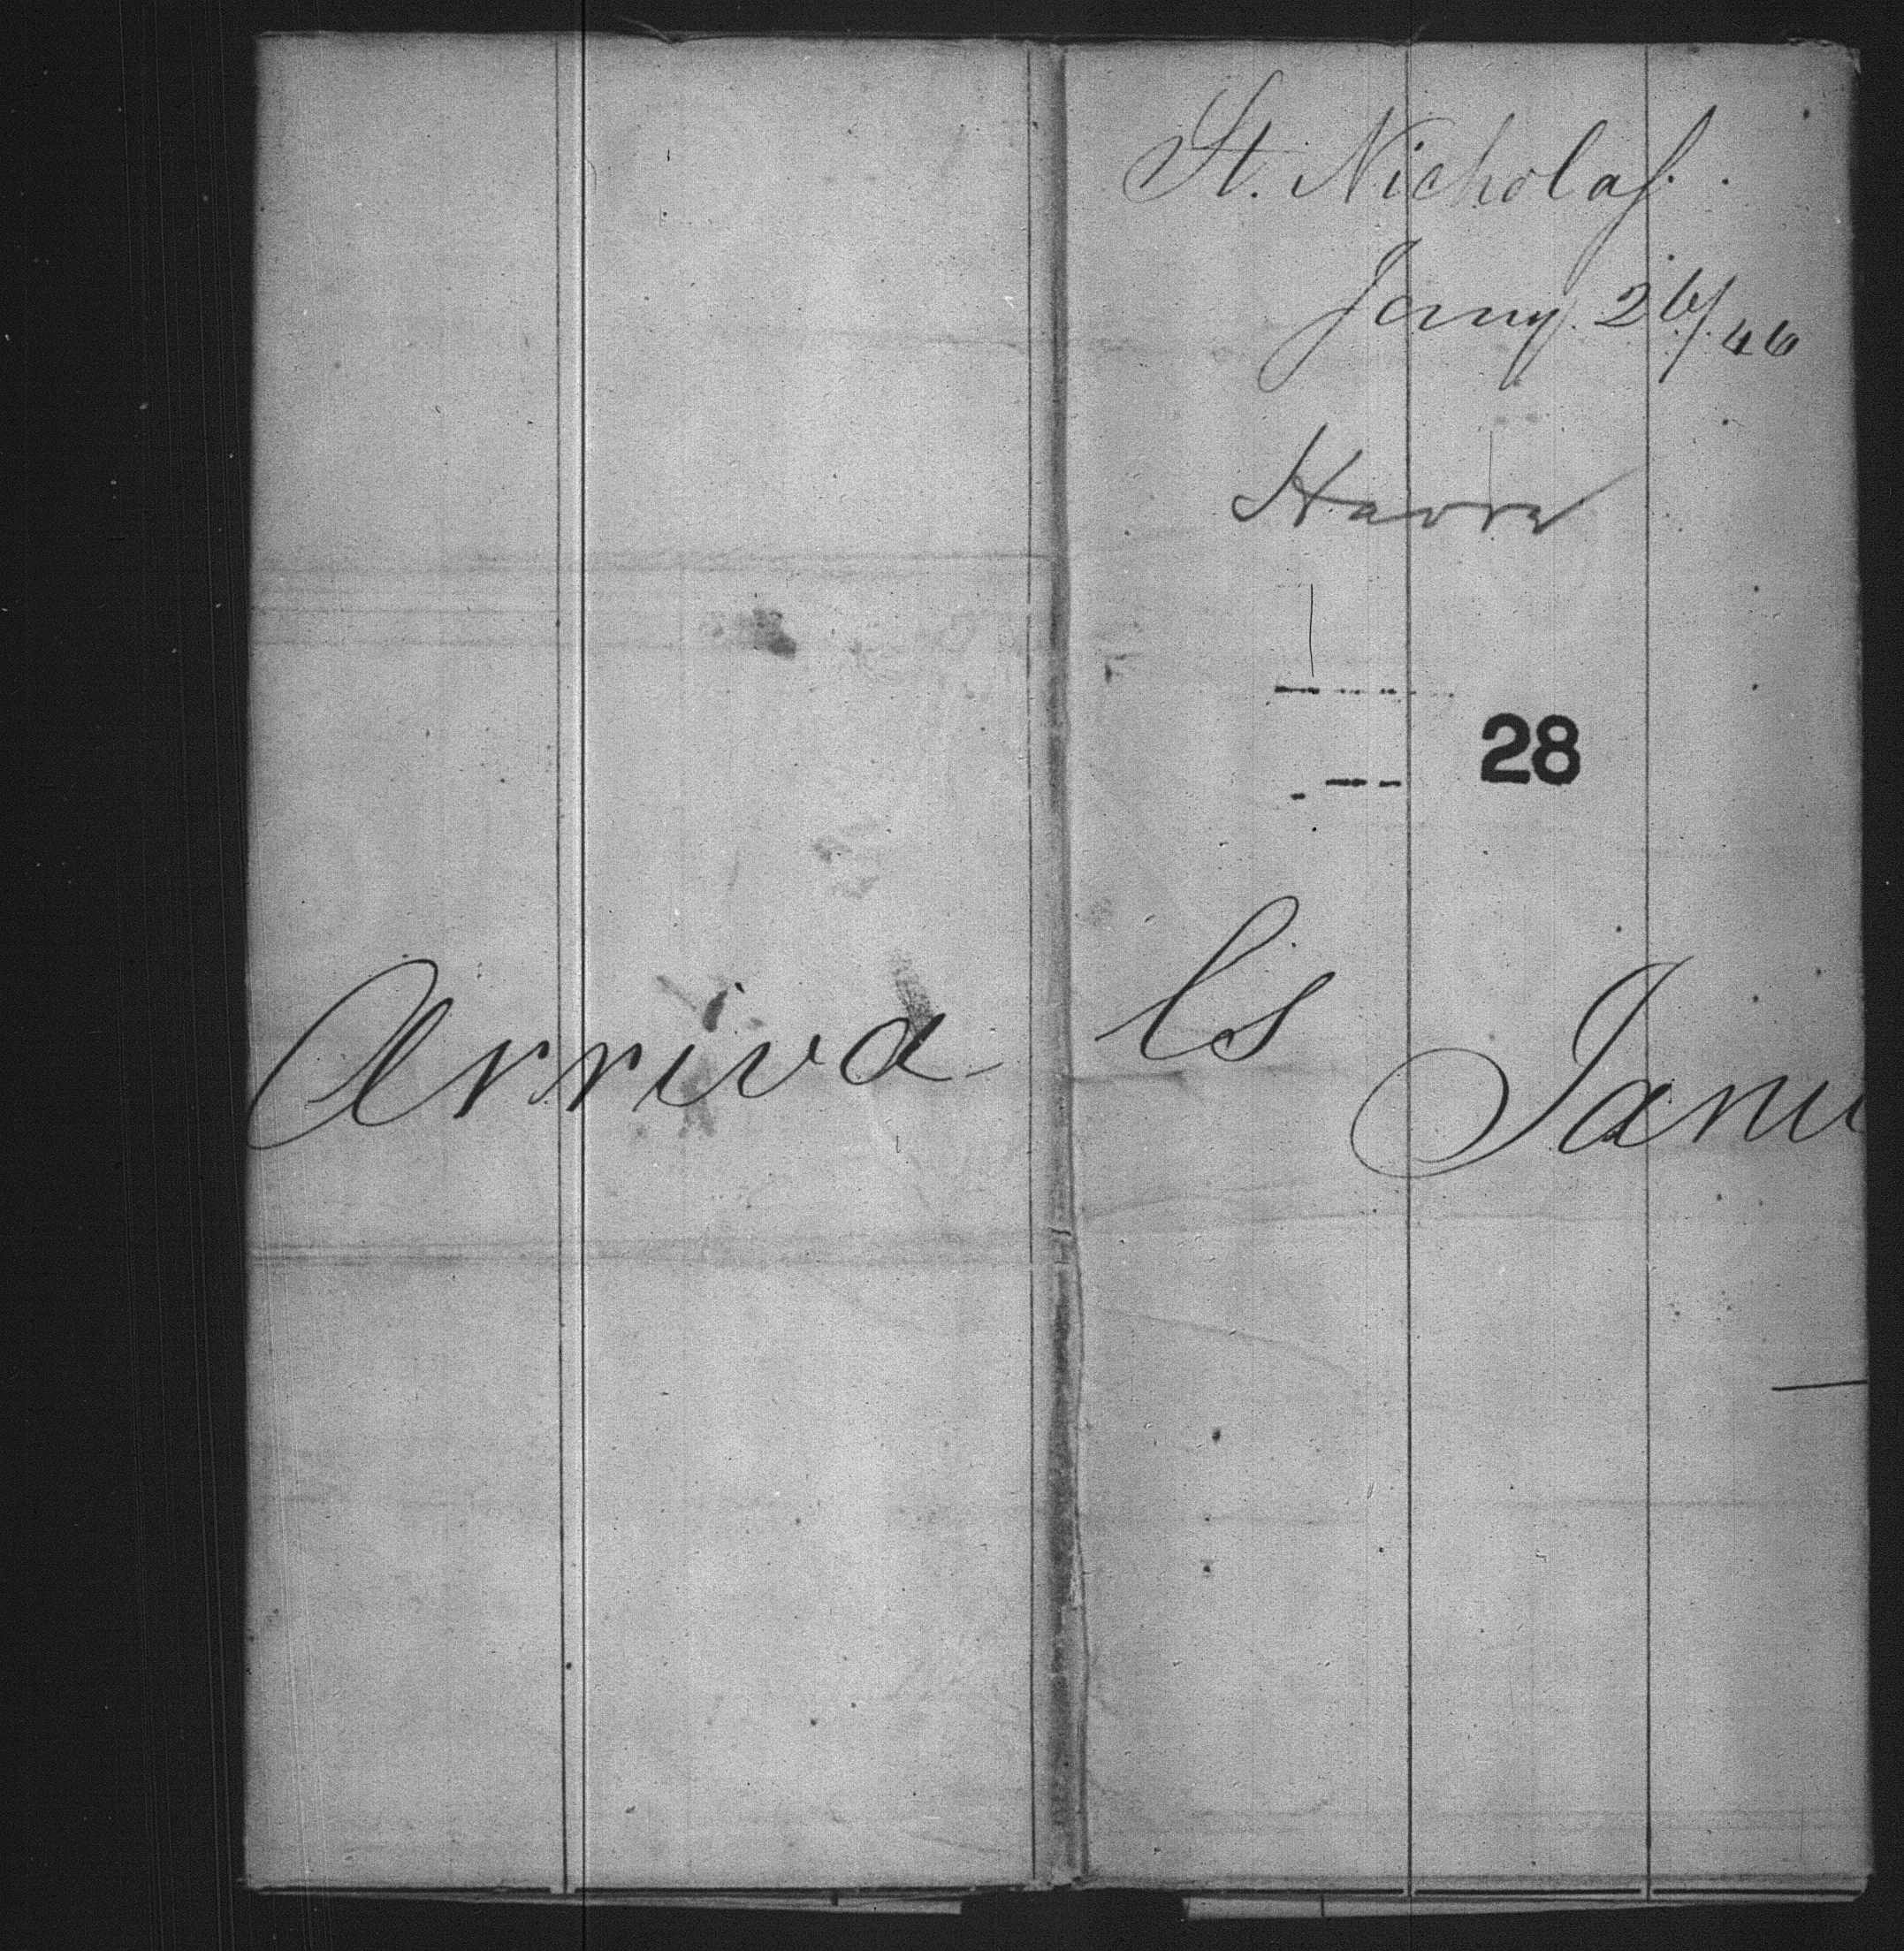 St. Nicholas.
Jany. 26/46
Havre
28
Arrivals Janu